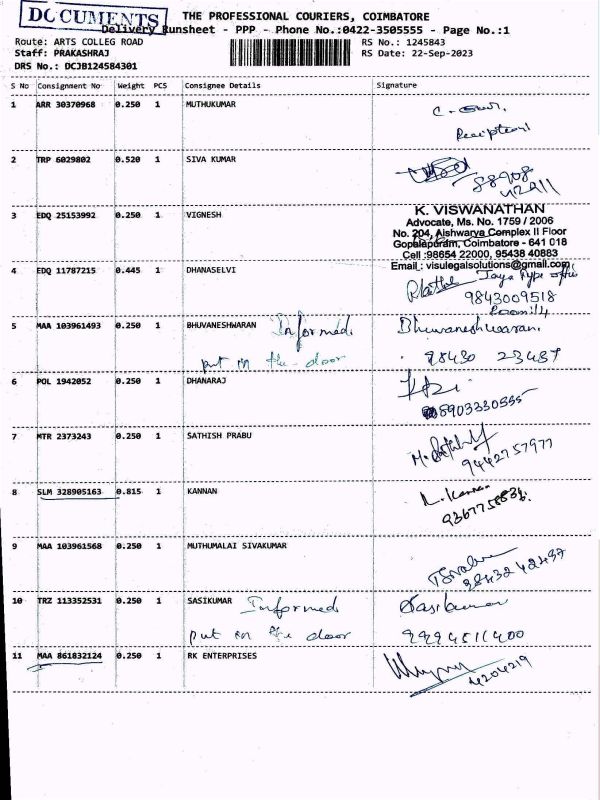 DOCUMENTS
THE PROFESSIONAL COURIERS, COIMBATORE
Delivery Runsheet - PPP - Phone No.:0422-3505555 - Page No.:1
Route: ARTS COLLEG ROAD RS No.: 1245843
Staff: PRAKASHRAJ RS Date: 22-Sep-2023
DRS No.: DCJB124584301
S No Consignment No Weight PCS Consignee Details Signature
1 ARR 30370968 0.250 1 MUTHUKUMAR
Receiptions
2 TRP 6029802 0.520 1 SIVA KUMAR
88908
42911
3 EDQ 25153992 0.250 1 VIGNESH
K. VISWANATHAN
Advocate, Ms. No. 1759 / 2006
No. 204, Aishwarya Complex II Floor
Gopalapuram, Coimbatore - 641 018
Cell :98654 22000, 95438 40883
Email : visulegalsolutions@gmail.com
4 EDQ 11787215 0.445 1 DHANASELVI
Jaya Type office
9843009518
Room 14
5 MAA 103961493 0.250 1 BHUVANESHWARAN Informed Bhuvaneshwaran.
put in the door 98430 23487
6 POL 1942052 0.250 1 DHANARAJ
8903330555
7 MTR 2373243 0.250 1 SATHISH PRABU
9442757977
8 SLM 328905163 0.815 1 KANNAN
Kannan
9 MAA 103961568 0.250 1 MUTHUMALAI SIVAKUMAR
98432 42437
10 TRZ 113352531 0.250 1 SASIKUMAR Informed Sasikumar
put in the door 9994511400
11 MAA 861832124 0.250 1 RK ENTERPRISES
4204219